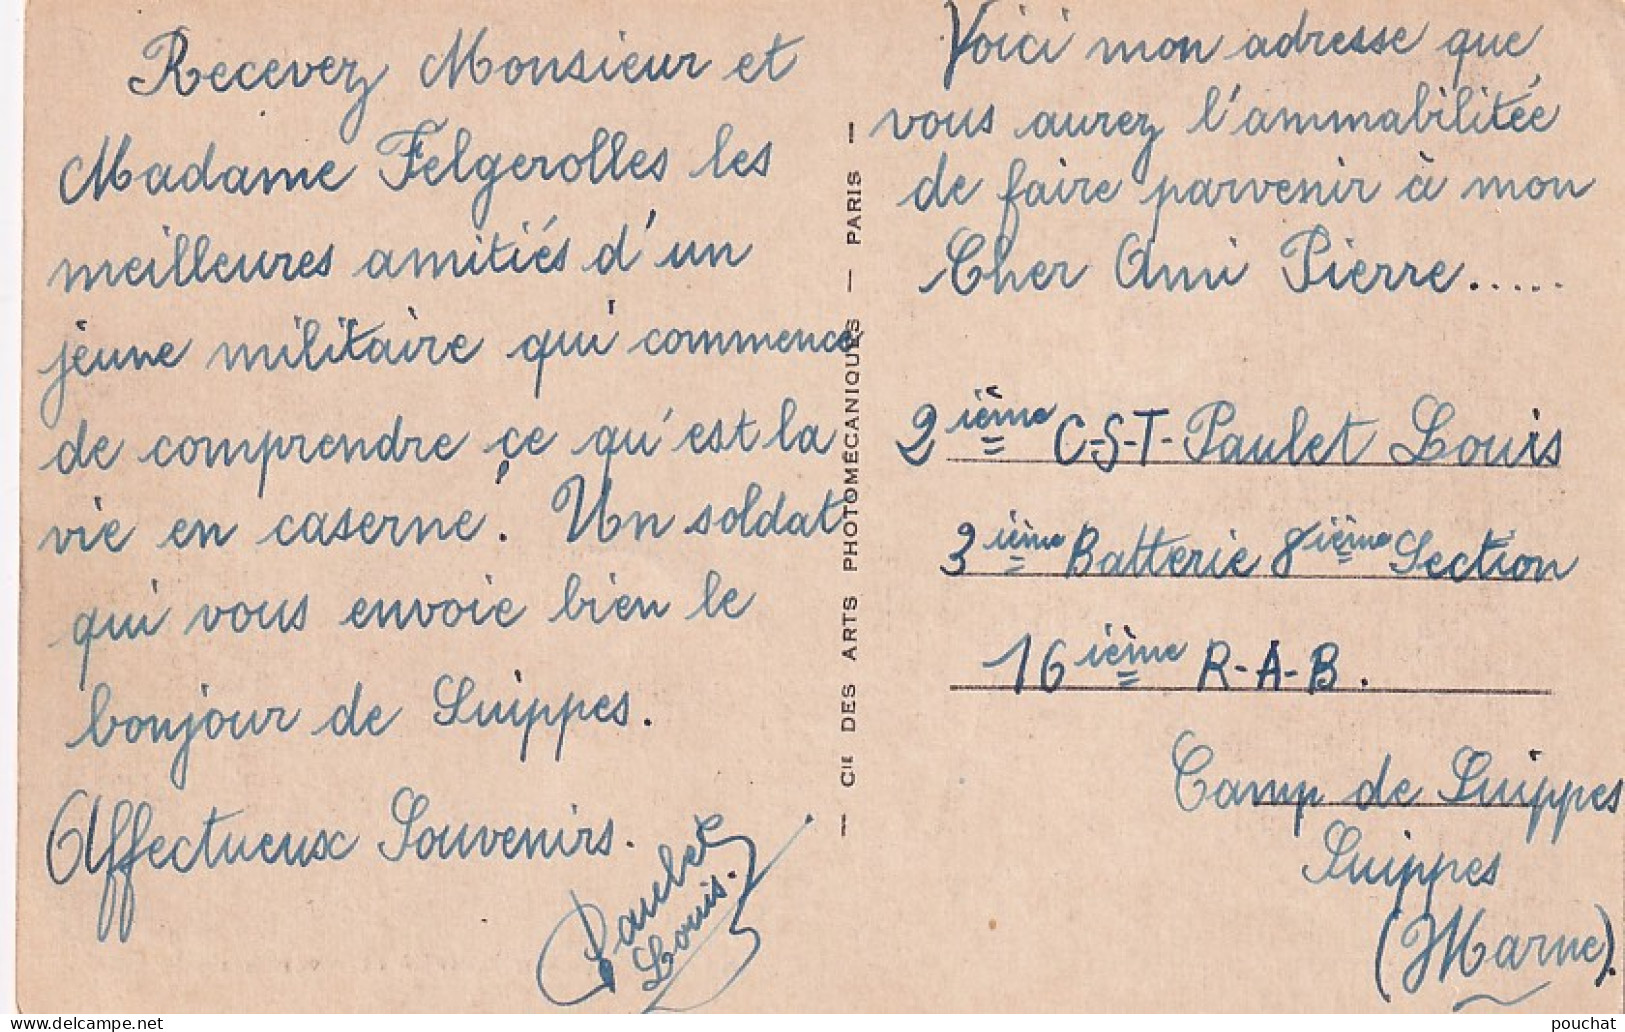 Recevez Monsieur et
Madame Felgerolles les
meilleures amitiés d'un
jeune militaire qui commence
de comprendre ce qu'est la
vie en caserne! Un soldat
qui vous envoie bien le
bonjour de Suippes.
Affectueux Souvenirs.
Paulet
Louis.
— CIE DES ARTS PHOTOMÉCANIQUES — PARIS —
Voici mon adresse que
vous aurez l'ammabilitée
de faire parvenir à mon
Cher Ami Pierre.....
2ième C-S-T- Paulet Louis
3ième Batterie 8ième Section
16ième R-A-B.
Camp de Suippes
Suippes
(Marne).
pouchat